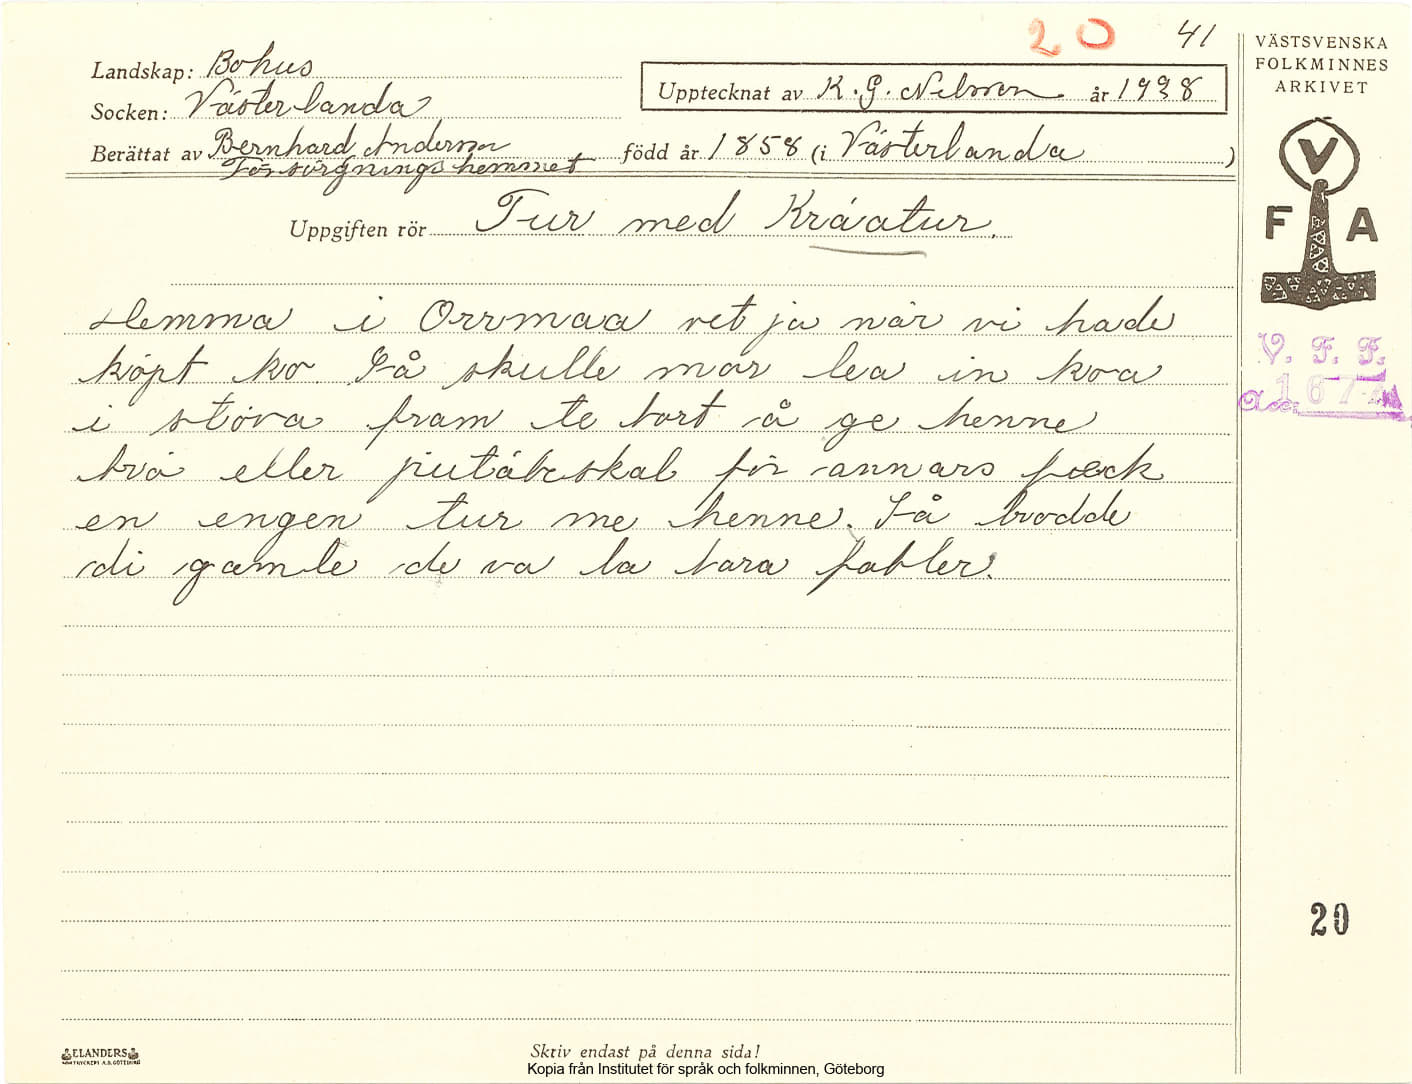 20 41
Landskap: Bohus
Socken: Västerlanda
Upptecknat av K. G. Nilsson år 1938
Berättat av Bernhard Anderson
Försörgningshemmet
född år 1858 (i Västerlanda )
Uppgiften rör Tur med Kräatur.
Hemma i Orrmaa vet ja när vi hade
köpt ko. Så skulle mor lea in koa
i stöva fram te bort å ge henne
brö eller putäteskal för annars feck
en engen tur me henne. Så brodde
di gamle de va la bara fabler.
VÄSTSVENSKA
FOLKMINNES
ARKIVET
V
F A
V. F. F.
20
ELANDERS
Skriv endast på denna sida!
Kopia från Institutet för språk och folkminnen, Göteborg